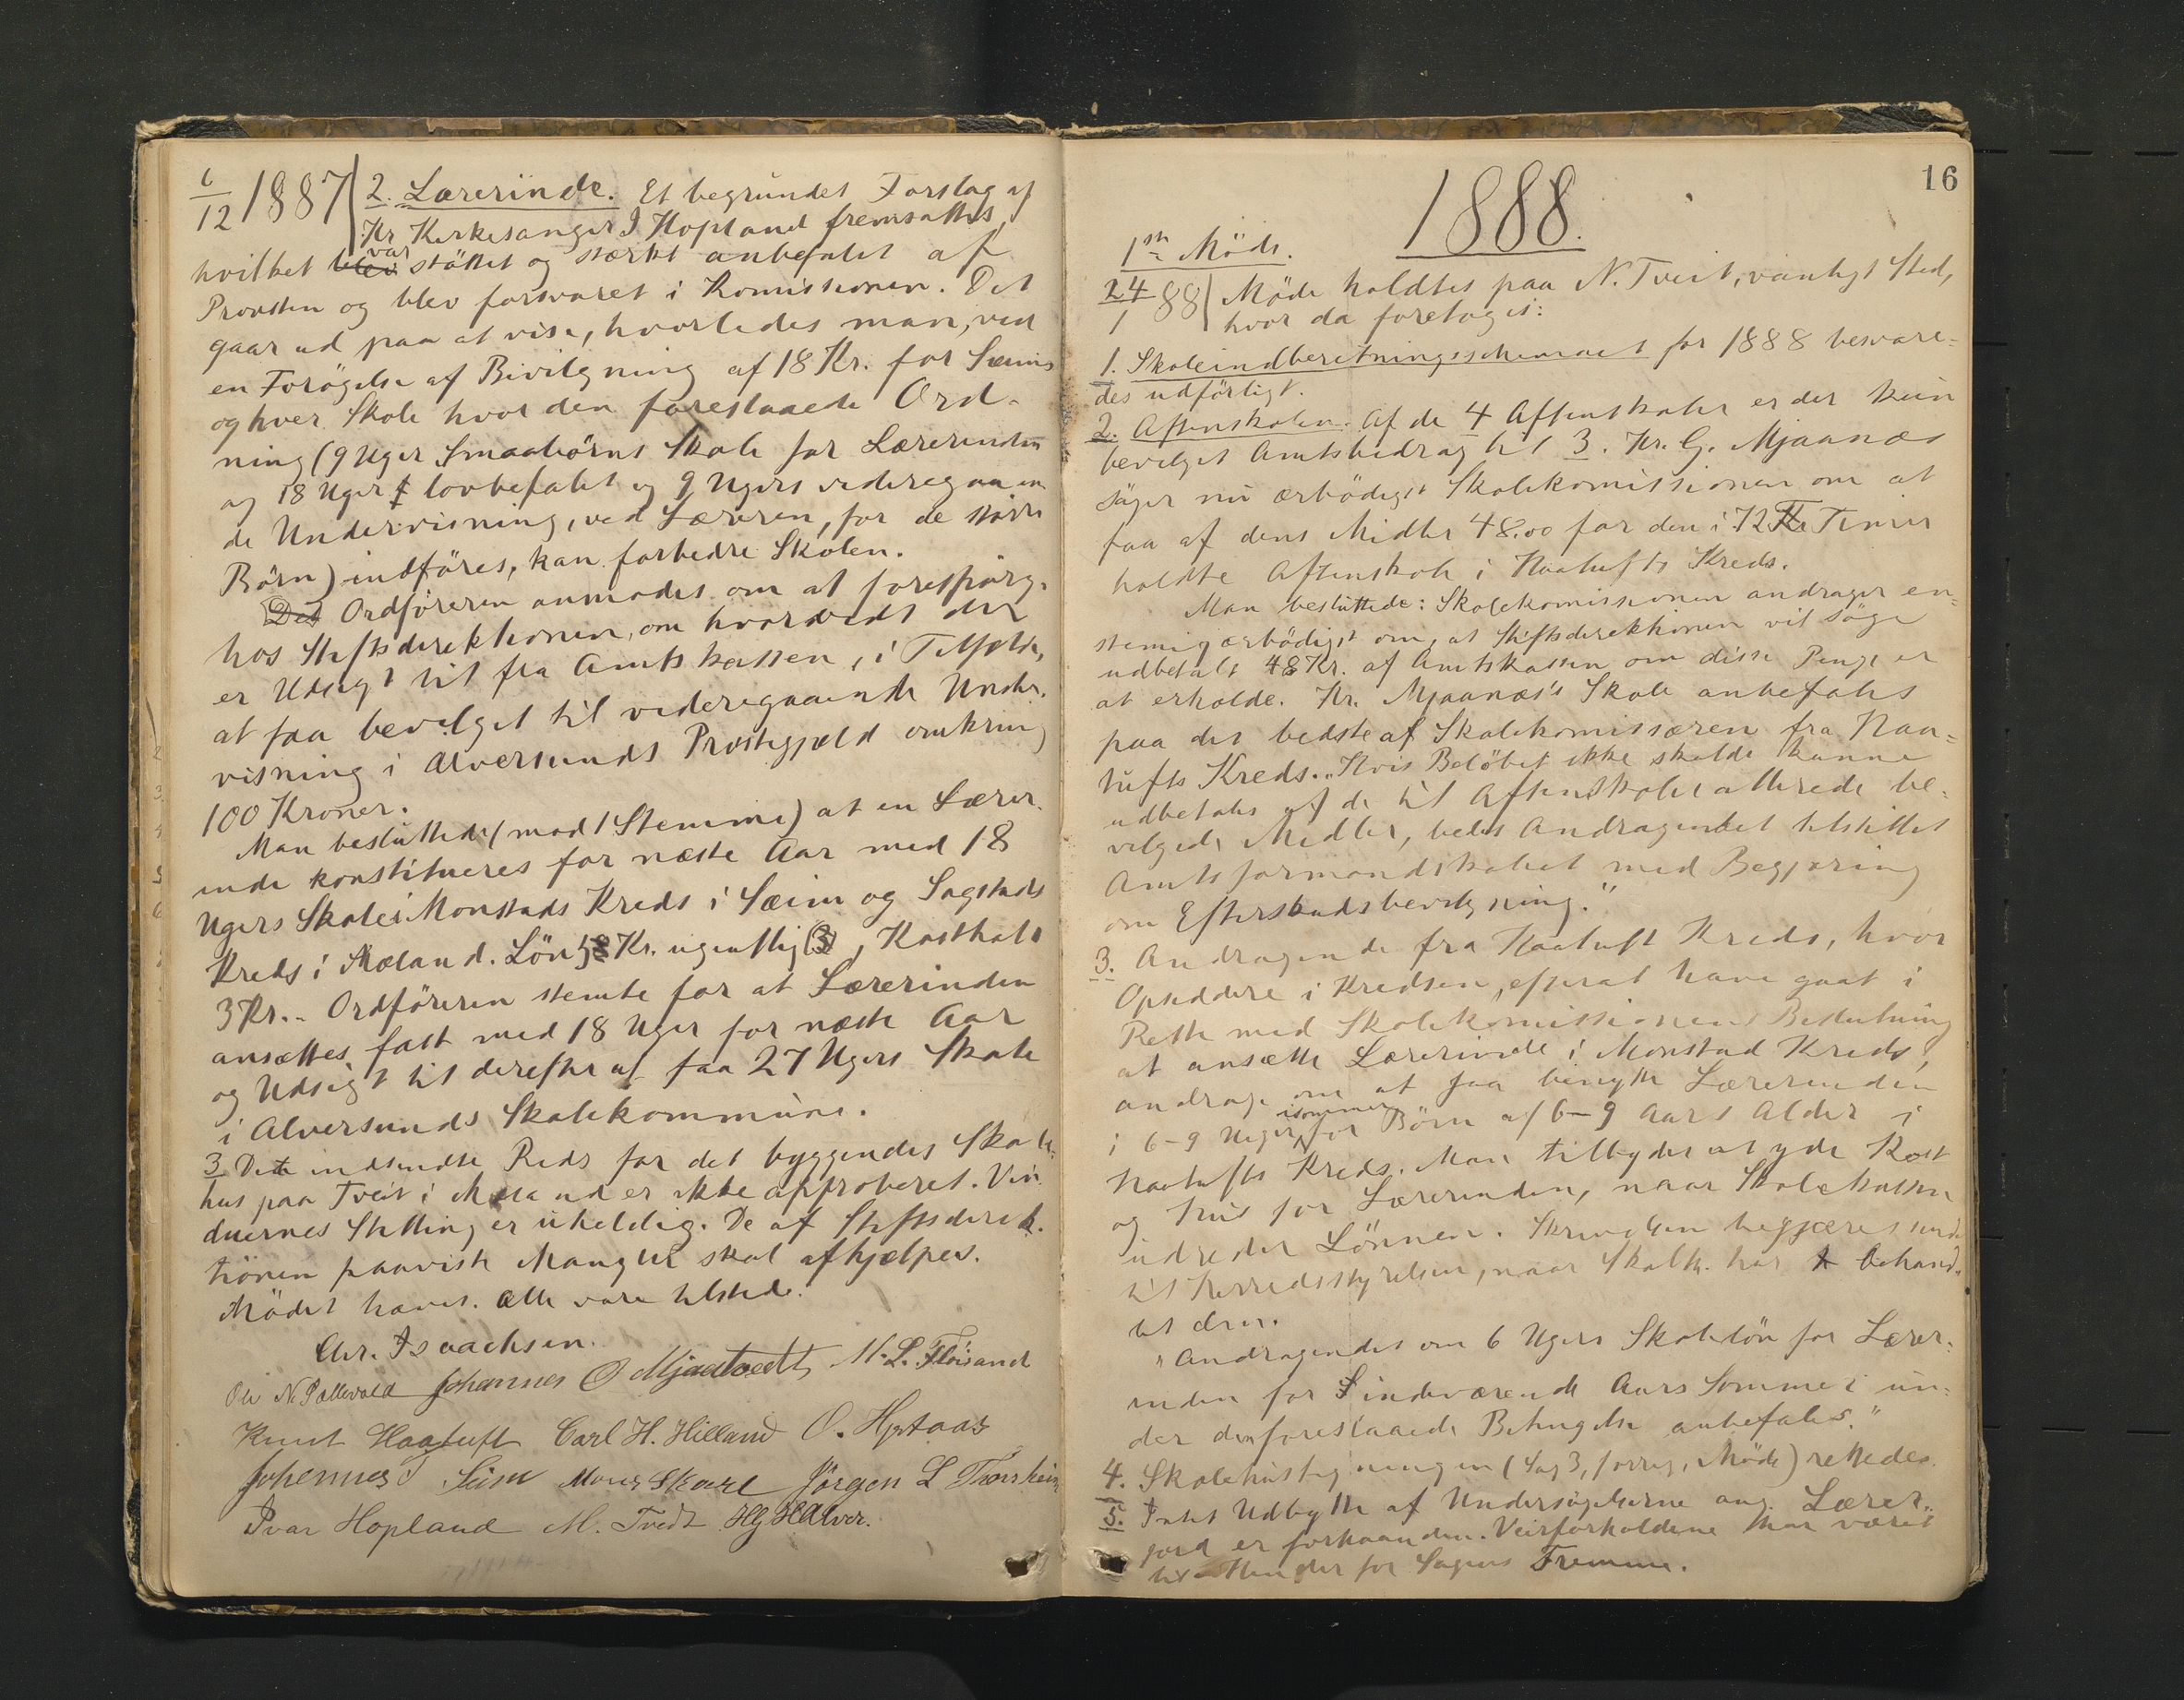 6/12 1887 2. Lærerinde. Et begrundet Forslag af
Hr Kirkesanger I Hopland fremsattes,
hvilket blev var støttet og stærkt anbefalet af
Provsten og blev forsvaret i Komissionen. Det
gaar ud paa at vise, hvorledes man, ved
en Forögelse af Bivilgning af 18 Kr. for Sæims
og hver Skole hvor den foreslaaede Ord-
ning (9 Uger Smaabörns Skole for Lærerinden
og 18 Uger lovbefalet og 9 Ugers videregaaen
de Undervisning, ved Læreren, for de større
Börn) indföres, kan forbedre Skolen.
Det Ordföreren anmodes om at forespörge
hos Stiftsdirektionen, om hvorvidt der
er Udsigt til fra Amtskassen, i Tilfælde,
at faa bevilget til videregaaende Under-
visning i Alversunds Præstegjæld omkring
100 Kroner.
Man besluttede (mod 1 Stemme) at en Lærer-
inde konstitueres for næste Aar med 18
Ugers Skole i Monstads Kreds i Sæim og Sagstads
Kreds i Mæland. Lön 5 Kr. ugentlig (3), Kosthold
3 Kr. - Ordföreren stemte for at Lærerinden
ansættes fast med 18 Uger for næste Aar
og Udsigt til derefter at faa 27 Ugers Skole
i Alversunds Skolekommune.
3 Det indsendte Rids for det byggendes Skole-
hus paa Tveit i Mæland er ikke approberet. Vin-
duernes Stilling er uheldig. De af Stiftsdirek-
tionen paaviste Mangler skal afhjælpes.
Mödet hævet. Alle vare tilstede.
Chr. Isaachsen.
Ole N. Pallevold Johannes O Mjaatvedt M. L. Flöisand
Knut Haatuft Carl H. Hilland O. Hptaas
Johannes J Seim Mons Skare Jörgen L Thorsheim
Ivar Hopland M. Tvedt HgHalvor.
16
1888.
1ste Möde.
24/1 88 Möde holdtes paa N. Tveit, vanligt Sted,
hvor da foretoges:
1. Skoleindberetningsschemaet for 1888 besvare-
des udförligt.
2. Aftenskolen. Af de 4 Aftenskoler er der kun
bevilget Amtsbidrag til 3. Hr. G. Mjaanæs
söger nu ærbödigst Skolekomissionen om at
faa af dens Midler 48.00 for den i 72 Timer
holdte Aftenskole i Haatufts Kreds.
Man besluttede: Skolekomissionen andrager en-
stemig ærbödigst om, at Stiftsdirektionen vil söge
udbetalt 48 Kr. af Amtskassen om disse Penge er
at erholde. Hr. Mjaanæs's Skole anbefales
paa det bedste af Skolekomissæren fra Haa-
tufts Kreds. "Hvis Belöbet ikke skulde kunne
udbetales af de til Aftenskoler allerede be-
vilgede Midler, bedes Andragendet tilstillet
Amtsformandskabet med Begjæring
om Efterskudsbevilgning."
3. Andragende fra Haatuft Kreds, hvor
Opsiddere i Kredsen, efter at have gaat i
Rette med Skolekomissionens Beslutning
at ansætte Lærerinde i Monstad Kreds,
andrage om at faa benytte Lærerinden
i 6-9 Uger isommer for Börn af 6-9 Aars Alder i
Haatufts Kreds. Man tilbyder at yde Kost
og Hus for Lærerinden, naar Skolekassen
udreder Lönnen. Skrivelsen begjæres sendt
til Herredsstyrelsen, naar Skolek. har behand-
let den.
"Andragendet om 6 Ugers Skolelön for Lærer-
inden for indeværende Aars Sommer un-
der den foreslaaede Betingelse anbefales."
4. Skolehusbygningen (Sag 3, forrige Möde) rettedes.
5. Intet Udbytte af Undersögelserne ang. Lærer-
jord er forhaanden. Veirforholdene har været
til Hinder for Sagens Fremme.